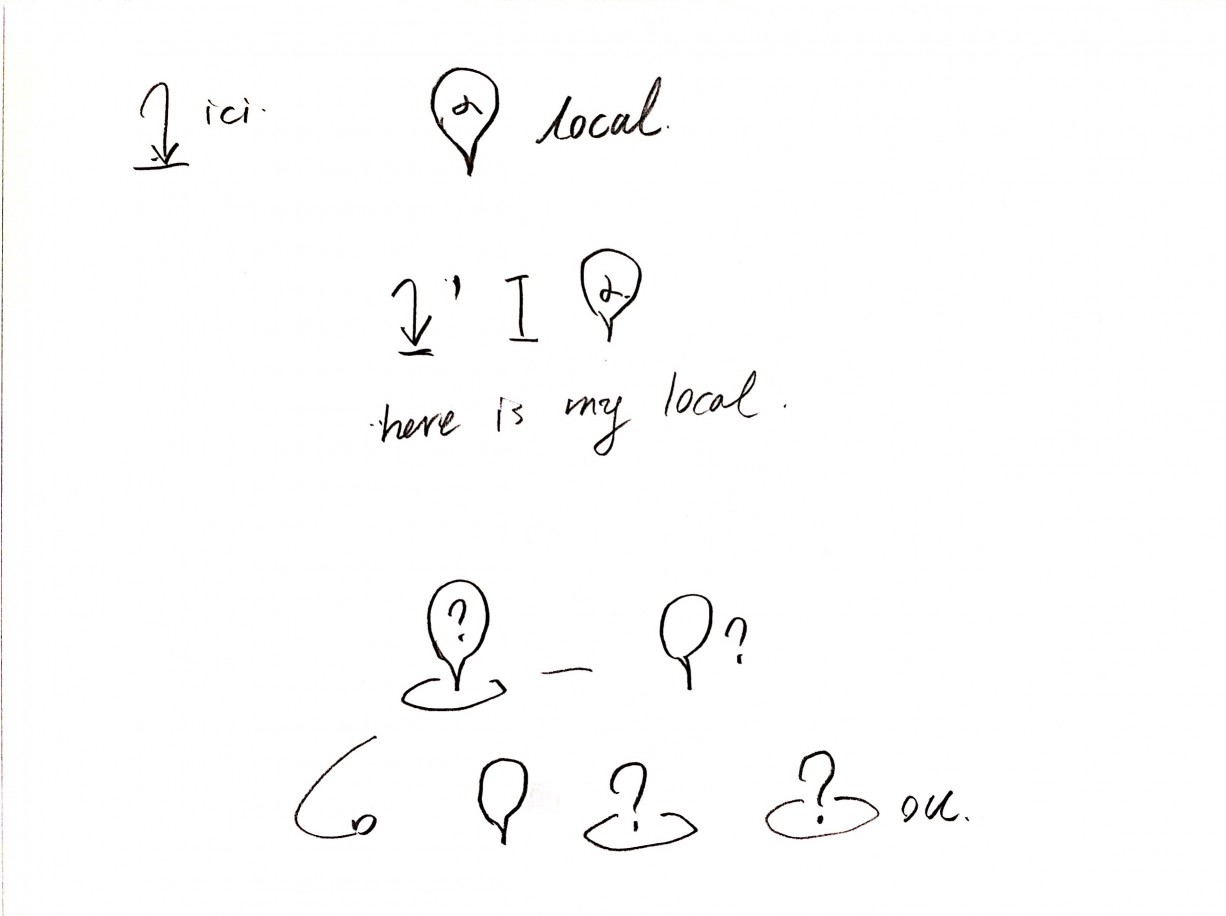 ici. local.
I
here is my local.
?
?
? ? ou.